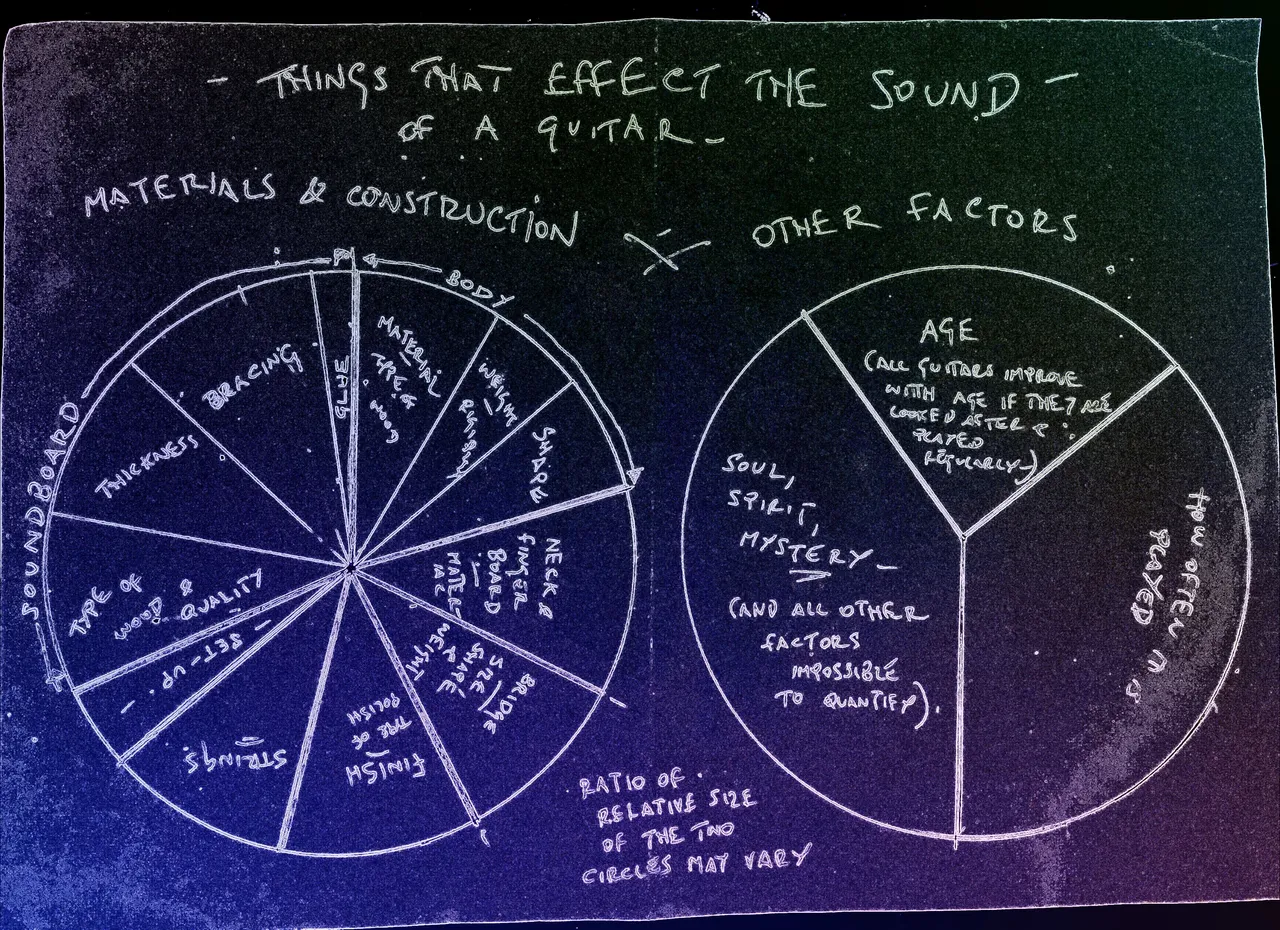 - THINGS THAT EFFECT THE SOUND -
OF A GUITAR -
MATERIALS & CONSTRUCTION
OTHER FACTORS
BODY
MATERIAL
TYPE OF
WOOD
WEIGHT
SHAPE
NECK &
FINGER
BOARD
BRIDGE
SIZE /
SHAPE &
WEIGHT
FINISH
TYPE OF
POLISH
STRINGS
- SET-UP -
SOUNDBOARD
TYPE OF
WOOD &
QUALITY
THICKNESS
BRACING
GLUE
AGE
(ALL GUITARS IMPROVE
WITH AGE IF THEY ARE
LOOKED AFTER &
PLAYED
REGULARLY-)
HOW OFTEN IT IS
PLAYED
SOUL,
SPIRIT,
MYSTERY -
(AND ALL OTHER
FACTORS
IMPOSSIBLE
TO QUANTIFY).
RATIO OF
RELATIVE SIZE
OF THE TWO
CIRCLES MAY VARY